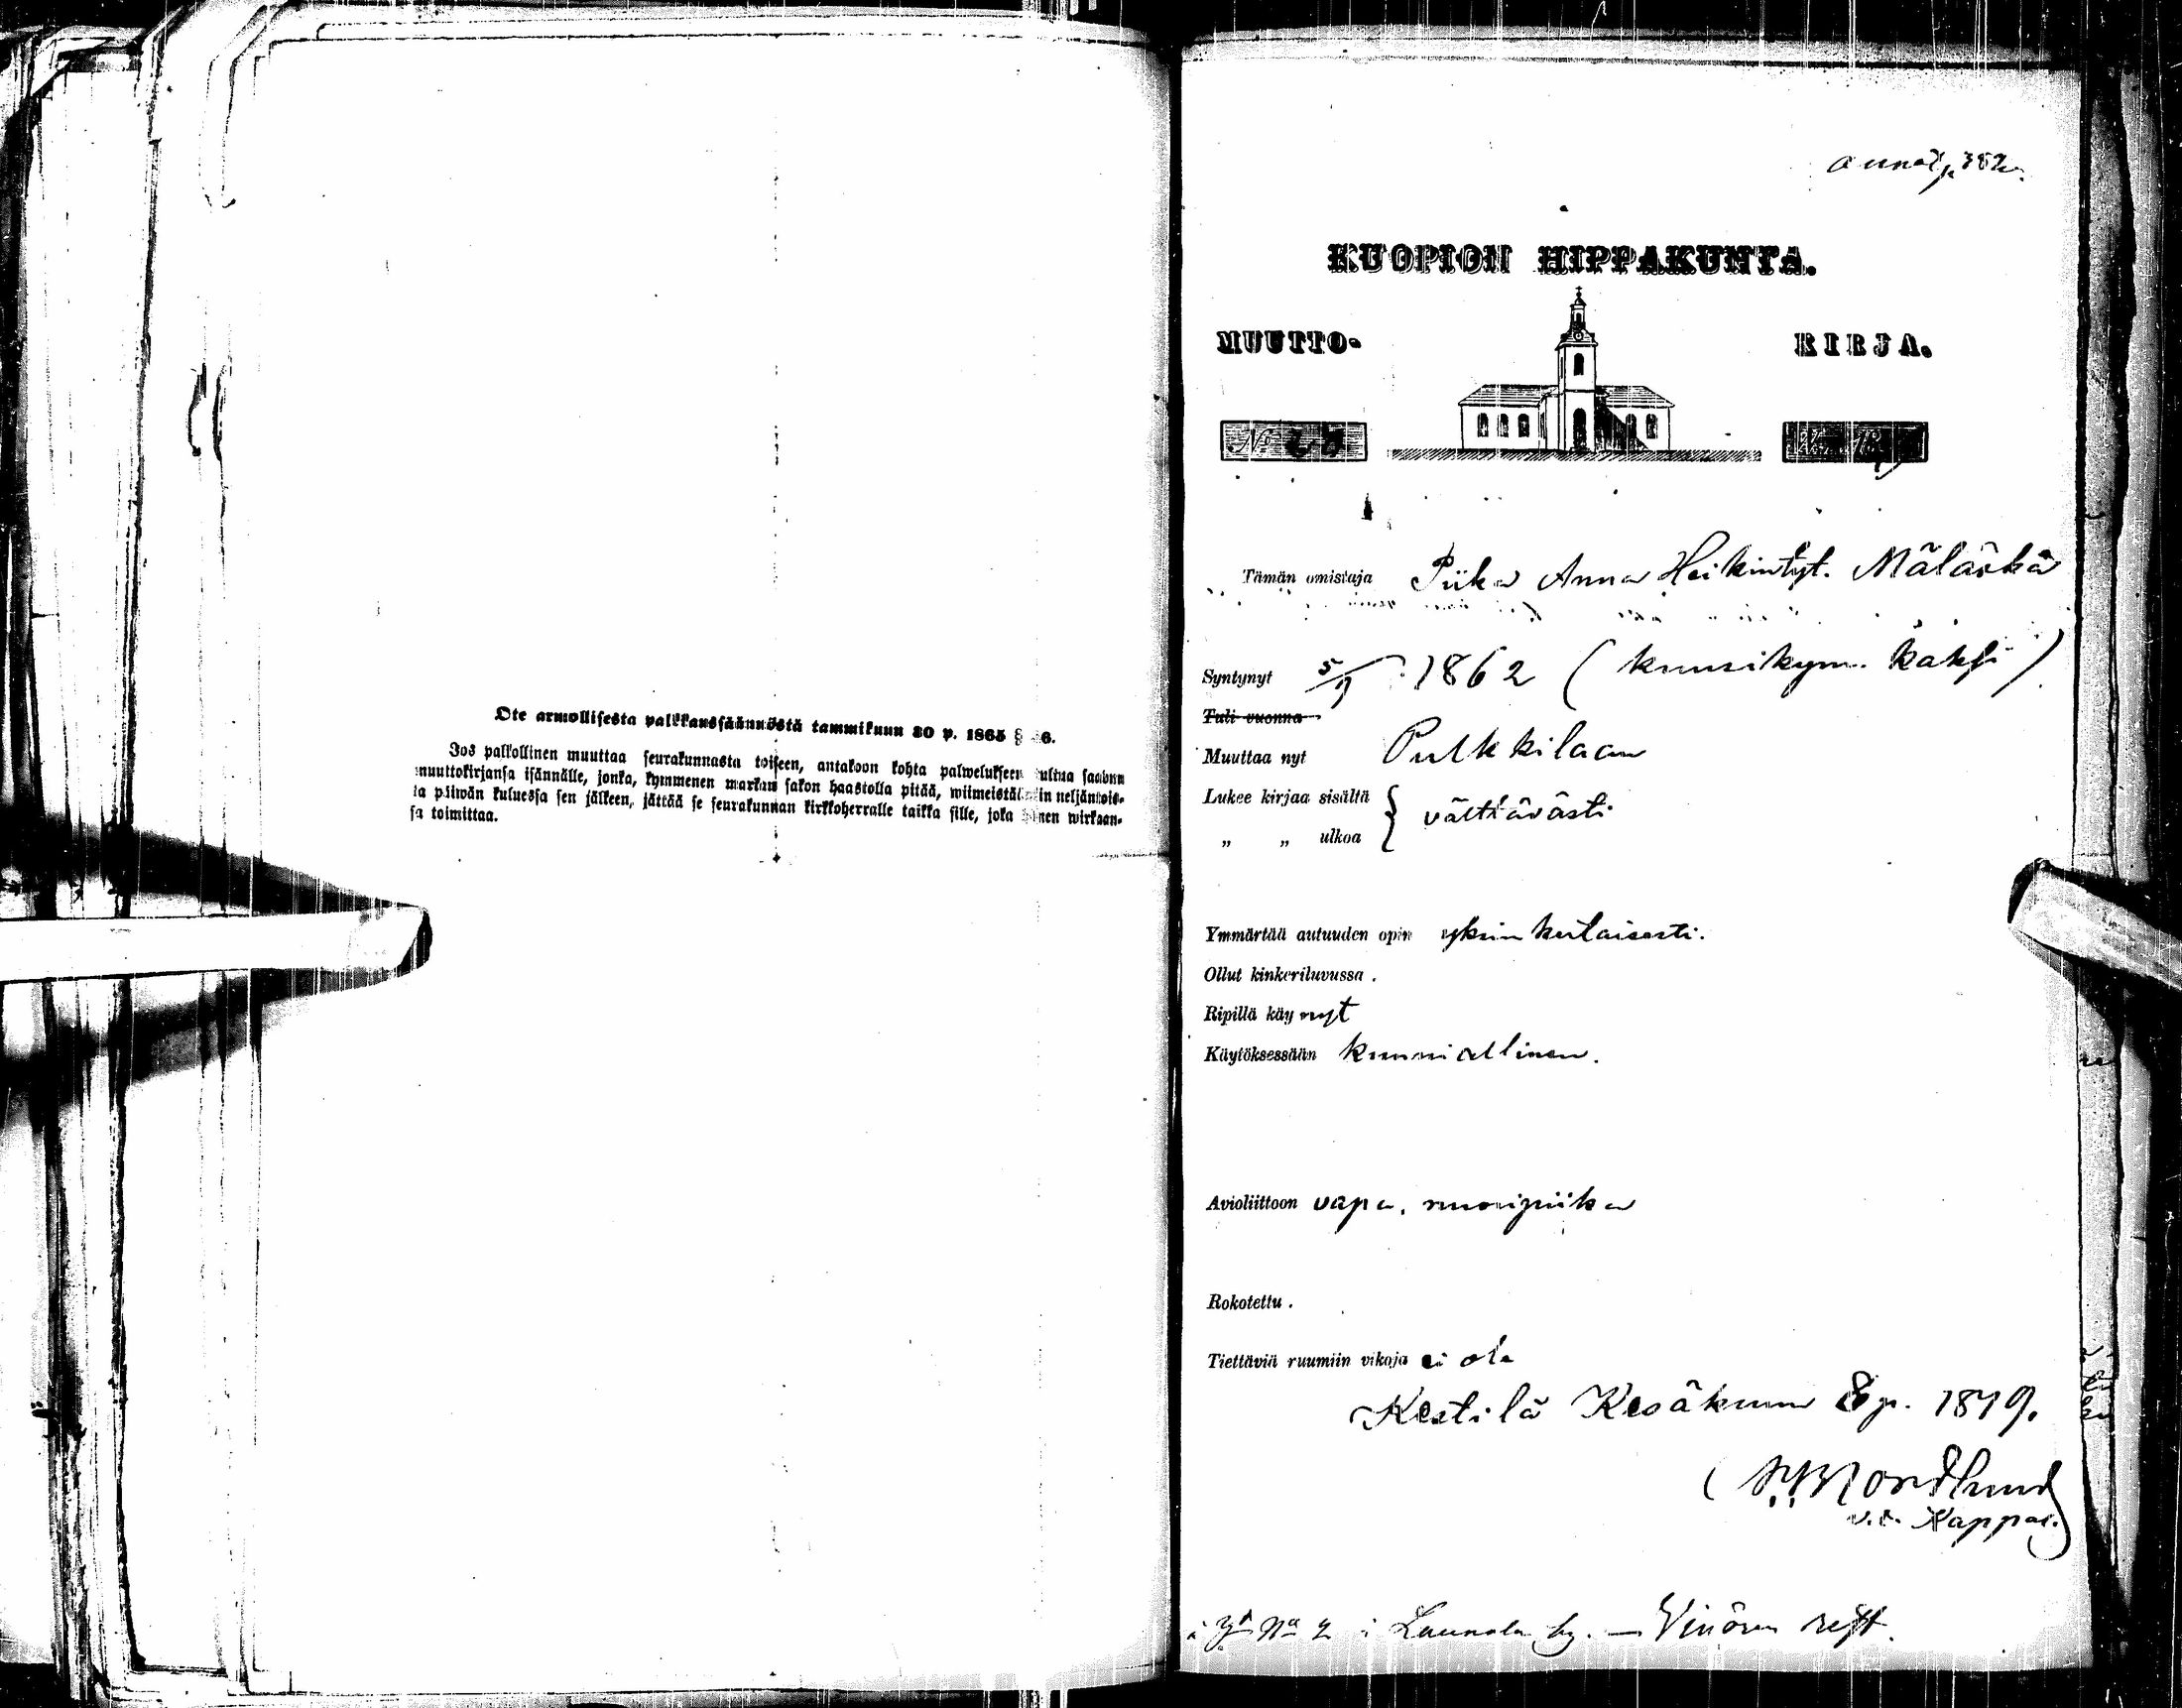 Ote armollisesta palkkaussäännöstä tammikuun 30 p. 1865 § 6.
Jos palkollinen muuttaa seurakunnasta toiseen, antakoon kohta palwelukseen tultua saadun
muuttokirjansa isännälle, jonka, kymmenen markan sakon haastolla pitää, wiimeistäkin neljäntois-
ta päiwän kuluessa sen jälkeen, jättää se seurakunnan kirkkoherralle taikka sille, joka hänen wirkaan-
sa toimittaa.
KUOPION HIPPAKUNTA.
MUUTTO- KIRJA.
No
Tämän omistaja Piika Anna Heikintyt. Mäläskä
Syntynyt 5/9 1862 (kuusikym. kaksi)
Tuli vuonna
Muuttaa nyt Pulkkilaan
Lukee kirjaa sisältä } välttävästi
„ „ ulkoa
Ymmärtää autuuden opin yksinkertaisesti.
Ollut kinkeriluvussa .
Ripillä käynyt
Käytöksessään kunniallinen.
Avioliittoon vapa, nuoripiika
Rokotettu .
Tiettäviä ruumiin vikoja ei ole
Kestilä Kesäkuun 8 p. 1879.
Nordlund
v.t. Kappal.